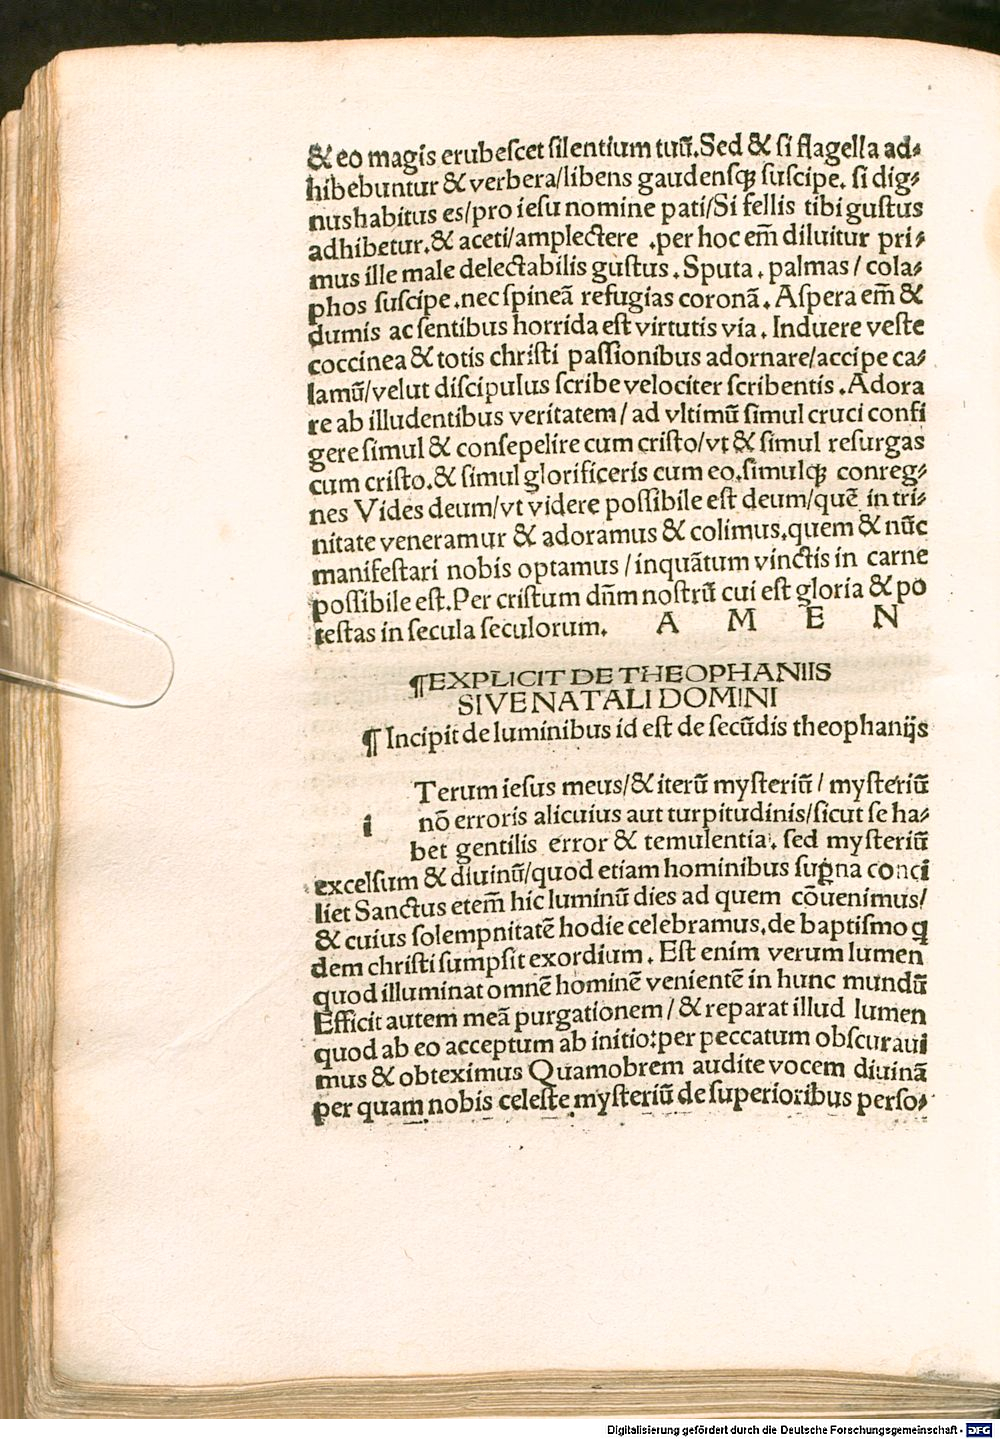 & eo magis erubeſcet ſilentium tuũ. Sed & ſi flagella ad⸗
hibebuntur & verbera/libens gaudenſqꝫ ſuſcipe. ſi dig⸗
nushabitus es/pro ieſu nomine pati/Si fellis tibi guſtus
adhibetur.& aceti/amplectere .per hoc em̃ diluitur pri⸗
mus ille male delectabilis guſtus. Sputa. palmas/ cola⸗
phos ſuſcipe.nec ſpineã refugias coronã. Aſpera em̃ &
dumis ac ſentibus horrida eſt virtutis via. Induere veſte
coccinea & totis chriſti paſſionibus adornare/accipe ca⸗
lamũ/velut diſcipulus ſcribe velociter ſcribentis. Adora
re ab illudentibus veritatem/ ad vltimũ ſimul cruci confi
gere ſimul & conſepelire cum criſto/vt & ſimul reſurgas
cum criſto.& ſimul glorificeris cum eo.ſimulqꝫ conreg⸗
nes Vides deum/vt videre poſſibile eſt deum/quẽ in tri⸗
nitate veneramur & adoramus & colimus.quem & nũc
manifeſtari nobis optamus/inquãtum vinctis in carne
poſſibile eſt.Per criſtum dñm noſtrũ cui eſt gloria & po
teſtas in ſecula ſeculorum. A M E N
¶EXPLICIT DE THEOPHANIIS
SIVE NATALI DOMINI
¶ Incipit de luminibus id eſt de ſecũdis theophanijs
i Terum ieſus meus/& iterũ myſteriũ/ myſteriũ
nõ erroris alicuius aut turpitudinis/ſicut ſe ha⸗
bet gentilis error & temulentia. ſed myſteriũ
excelſum & diuinũ/quod etiam hominibus ſuꝑna conci
liet Sanctus etem̃ hic luminũ dies ad quem cõuenimus/
& cuius ſolempnitatẽ hodie celebramus.de baptiſmo q
dem chriſti ſumpſit exordium. Eſt enim verum lumen
quod illuminat omnẽ hominẽ venientẽ in hunc mundũ
Efficit autem meã purgationem/& reparat illud lumen
quod ab eo acceptum ab initio:per peccatum obſcuraui
mus & obteximus Quamobrem audite vocem diuinã
per quam nobis celeſte myſteriũ de ſuperioribus perſo⸗
Digitalisierung gefördert durch die Deutsche Forschungsgemeinschaft - DFG